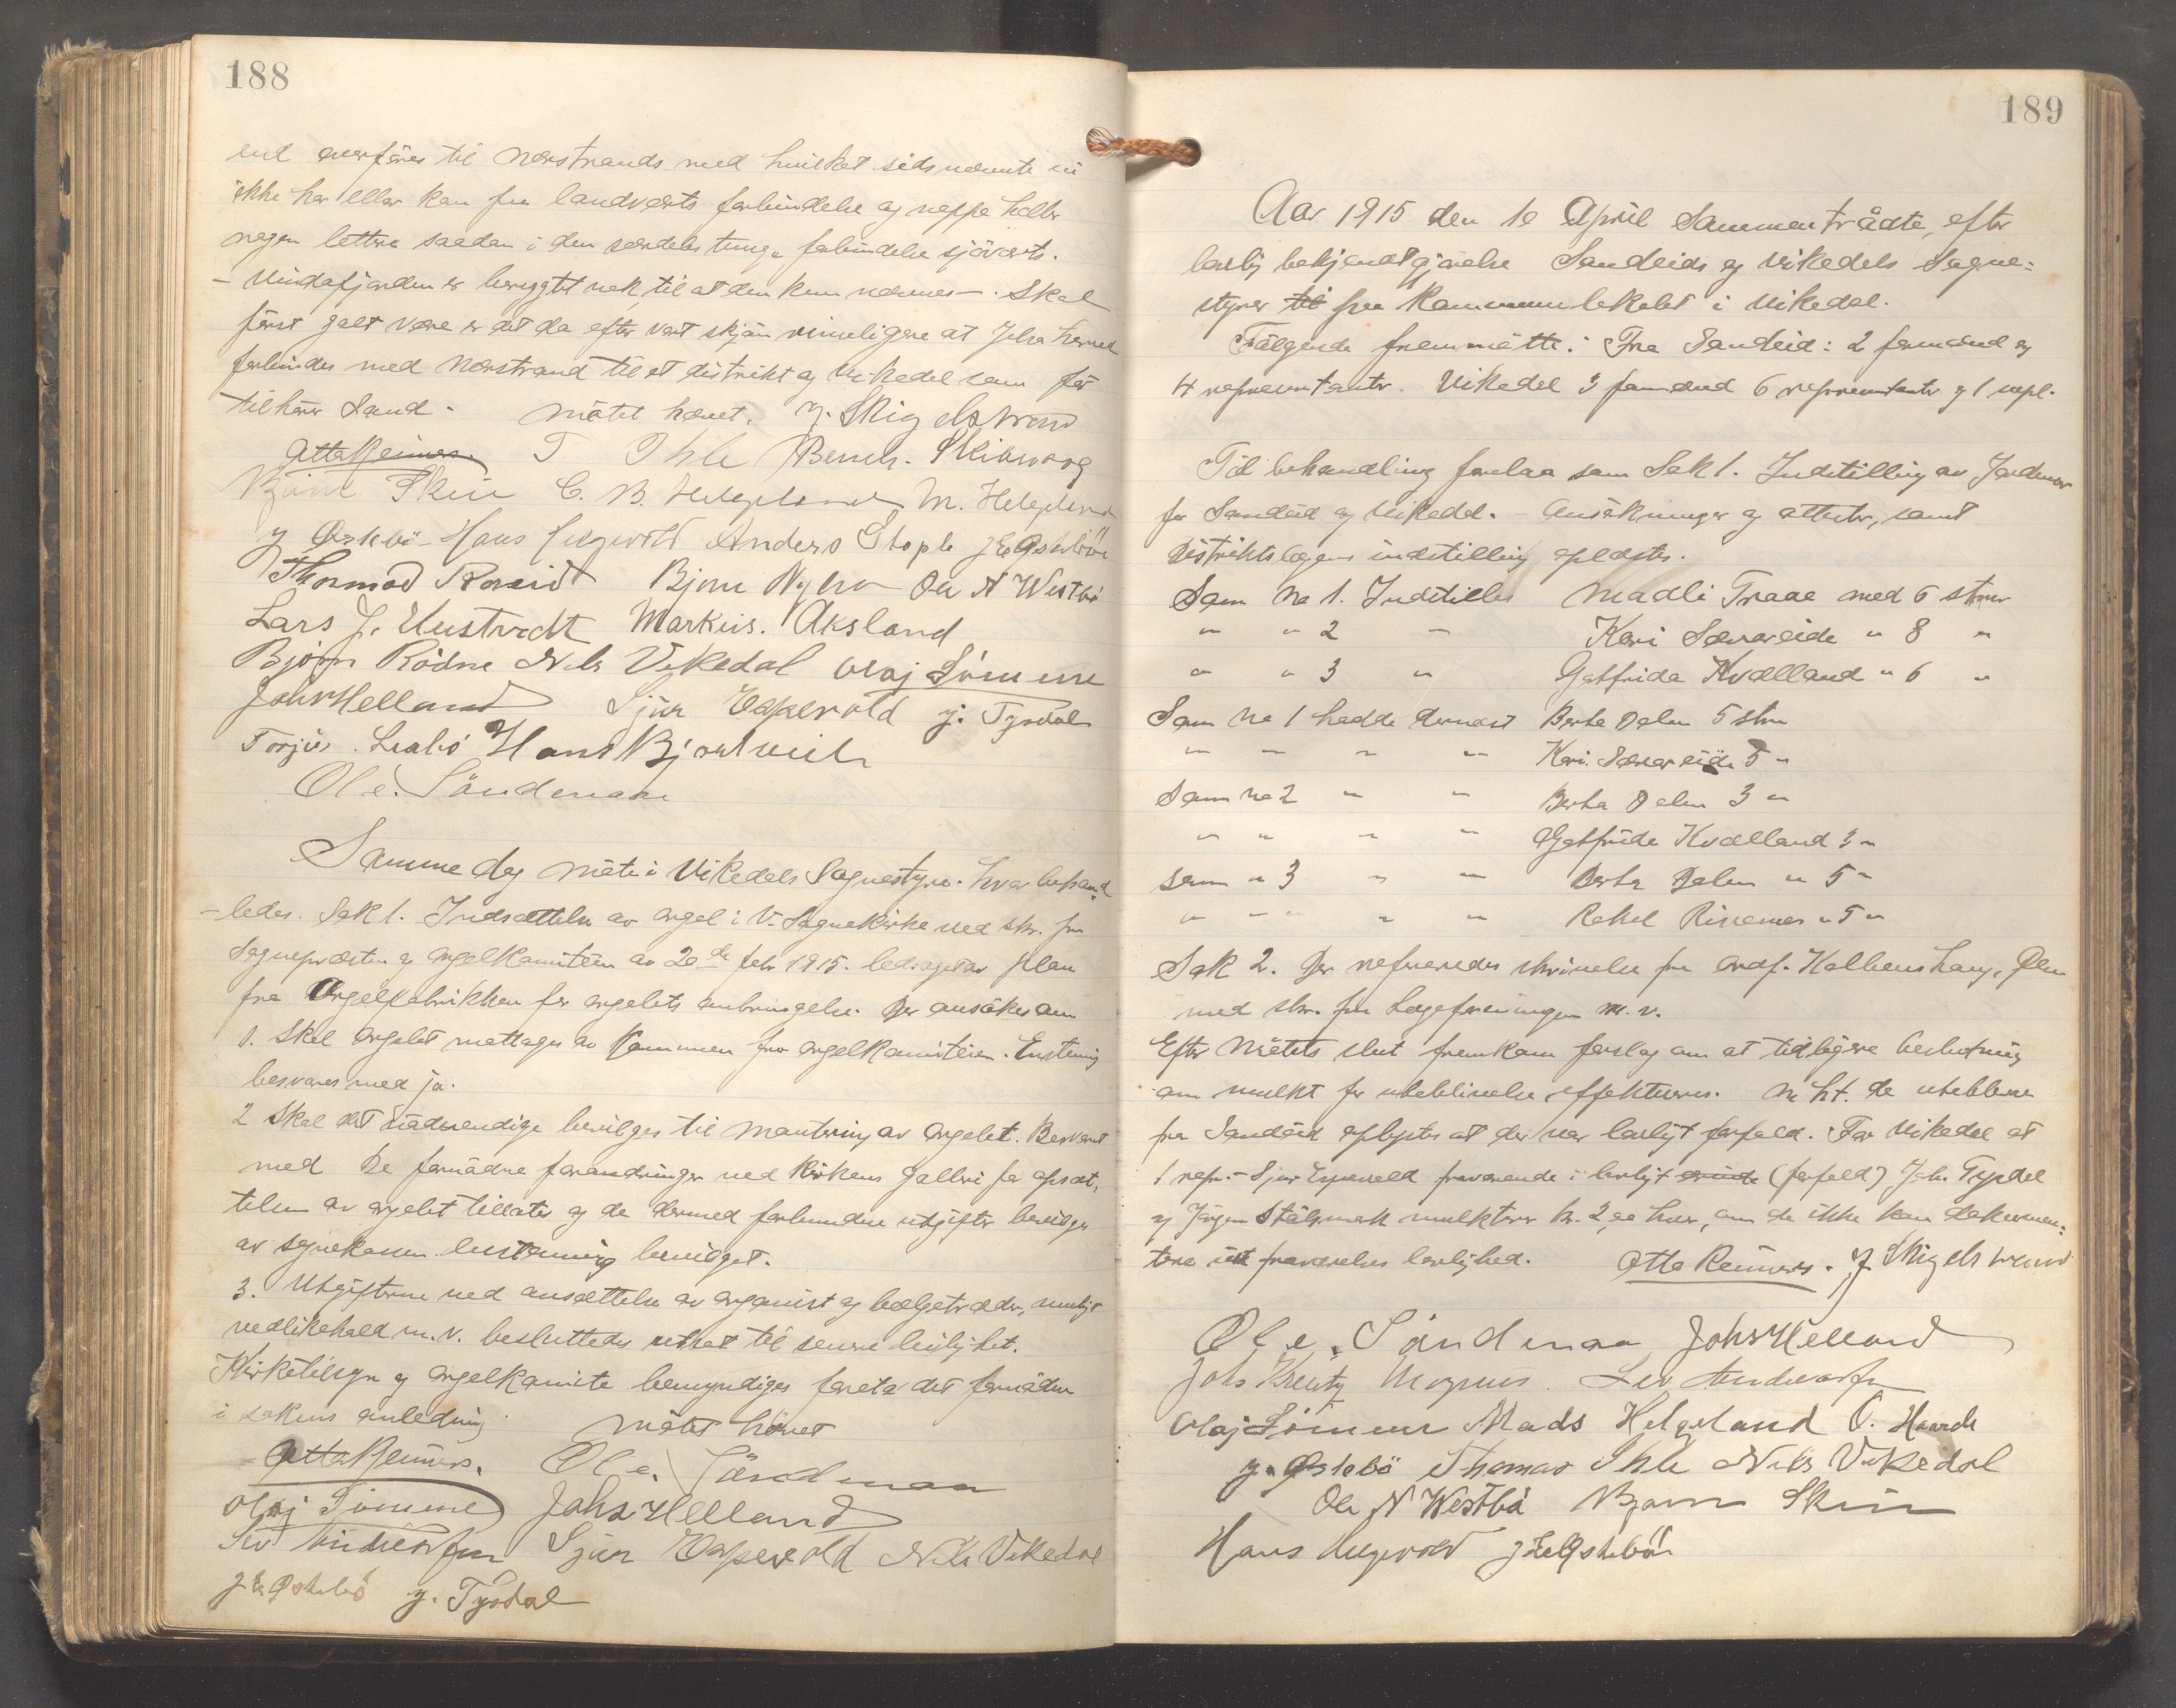 188
end overføres til Nærstrands med hvilket sidsnævnte vi
ikke har eller kan faa landværts forbindelse og neppe heller
nogen lettere saadan i den særdeles tunge forbindelse sjøværts.
– Vindafjorden er berygtet nok til at den kun nævnes –. Skal
først galt være er det da efter vort skjøn rimeligere at Jelsa herred
forbindes med Nærstrand til et distrikt og Vikedal som før
tilhører Sand. Møtet hævet. J. Skigelstrand
Otto Reimers. T Ihle Bernh.
Bjørn Skeie C. B. Helgeland M. Helgeland
J Østebø Hans Helgevold Anders Stople J E Østebø
Thormod Røveid Bjørn Nylro Ole N Westbø
Lars J. Mustvedt Markus. Aksland
Bjørn Rødne Nils Vikedal Olaj Sömme
Johs Helland Sjur Espevold J. Tysdal
Torjus. Hans
Ole. Söndenaa
Samme dag møte i Vikedals Sognestyre. Hvor behand
-ledes. Sak 1. Indsættelse av orgel i V. Sognekirke ved skr. fra
Sognepræsten og orgelkomiteen av 20de febr 1915. ledsaget av plan
fra Orgelfabrikken for orgelets anbringelse. Der ansøkes om
1. Skal orgelet mottages av Kommunen fra orgelkomiteen. Enstemig
besvares med ja.
2 Skal det nødvendige bevilges til montering av orgelet. Besvaret
med De fornødne forandringer ved Kirkens galleri for opsæt-
telsen av orgelet tillates og de dermed forbundne utgifter bevilges
av sognekassen. Enstemmig bevilget.
3. Utgifterne ved ansættelse av organist og bælgetræder, muligt
vedlikehold m.v. besluttedes utsat til senere leilighet.
Kirketilsyn og orgelkomite bemyndiges foreta det fornødne
i sakens anledning. Møtet hævet
Otto Reimers. Ole. Söndenaa
Olaj Sömme Johs Helland
Sev Andersen Sjur Espevold Nils Vikedal
J E Østebø J. Tysdal
189
Aar 1915 den 10 April Sammentrådte, efter
lovlig bekjendtgjørelse Sandeids og Vikedals Sogne-
styrer til fra Kommunelokalet i Vikedal.
Følgende fremmøtte: Fra Sandeid: 2 formænd og
4 repræsentanter. Vikedal 3 formænd 6 repræsentanter og 1 supl.
Til behandling forelaa som Sak 1. Indstilling av Jordmor
for Sandeid og Vikedal. – Ansøkninger og attester, samt
Distriktslægens indstilling oplæstes.
Som No 1. Indstilles Madli Traae med 6 stemr
" " 2 " Kari Særareide " 8 "
" " 3 " Gotfrida Kvælland " 6 "
Som No 1 hadde dernæst Berta Dalen 5 stemr
" " " " Kari. Særareide 5 "
Som No 2 " " Berta Dalen 3 "
" " " " Gotfrida Kvælland 3 "
Som " 3 " " Berta Dalen " 5 "
" " " " Rakel " 5 "
Sak 2. Der refereredes skrivelse fra ordf. Kolbenshavg, Ølen
med skr. fra Lægeforeningen m. v.
Efter Møtets slut fremkom forslag om at tidligere beslutning
om mulkt for utebblivelse effektueres. M. h. t. de utebblevne
fra Sandeid oplystes at der var lovligt forfald. For Vikedal at
1 repr. – Sjur Espevold fraværende i lovligt ærinde (forfald) Joh. Tysdal
og Jørgen Stålsmark mulkteres kr. 2,00 hver, om de ikke kan dokumen-
tere sit fraværelses lovlighed. Otto Reimers. J. Skigelstrand
Ole. Söndenaa Johs Helland
Johs Magnus. Sev Andersen
Olaj Sömme Mads Helgeland O.
J. Østebø Thomas Ihle Nils Vikedal
Ole N Westbø Bjørn Skeie
Hans Helgevold J E Østebø